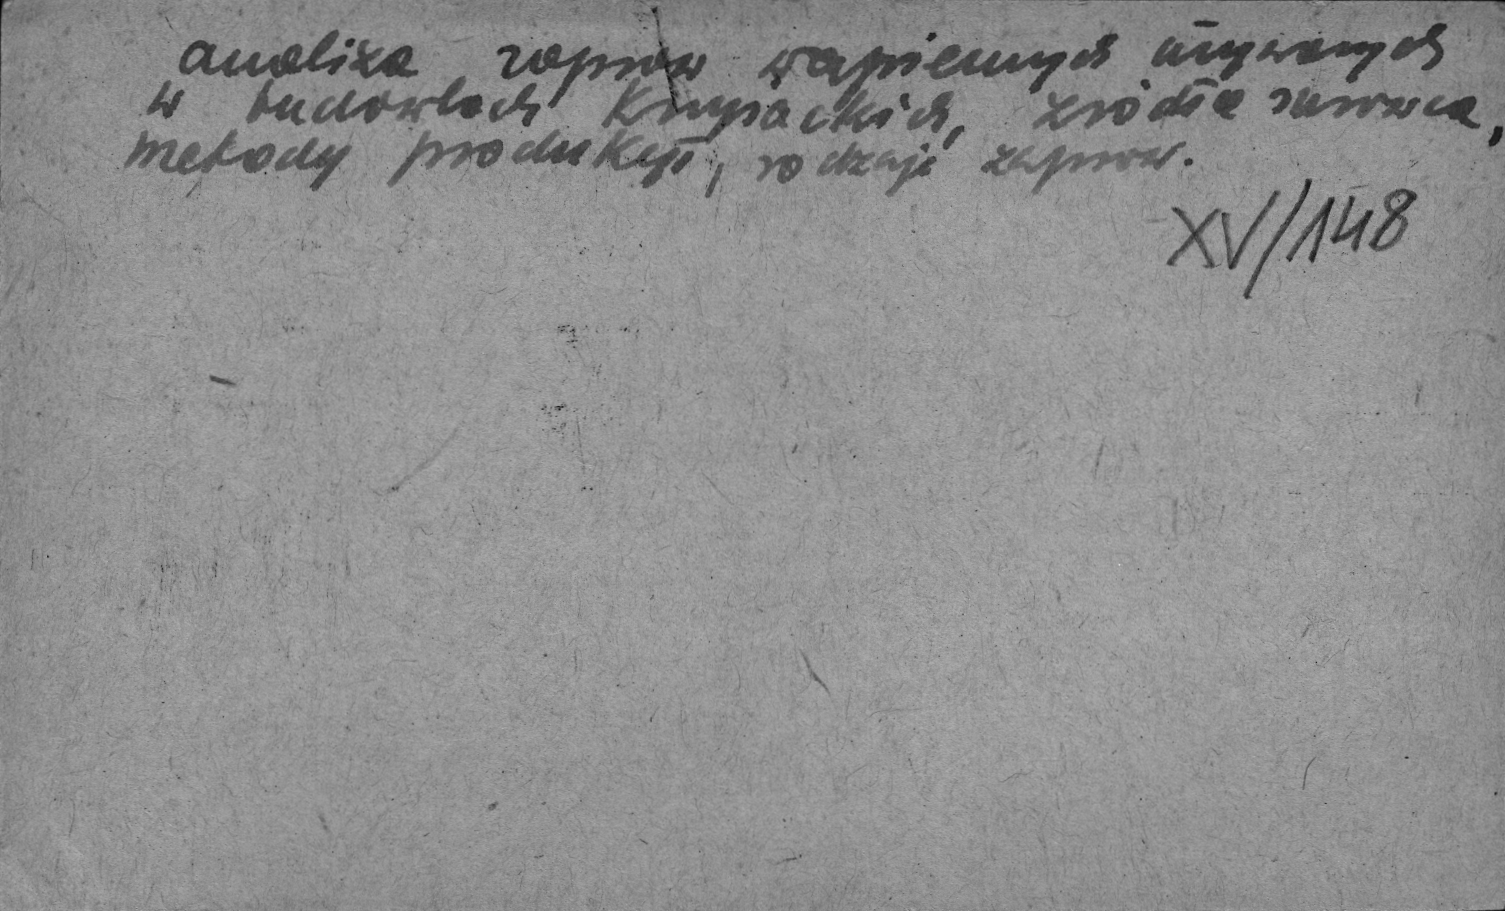 analiza zapraw wapiennych używanych
w budowlach Krzyżackich, źródła surowca,
metody produkcji, rodzaje zapraw.
XV/148